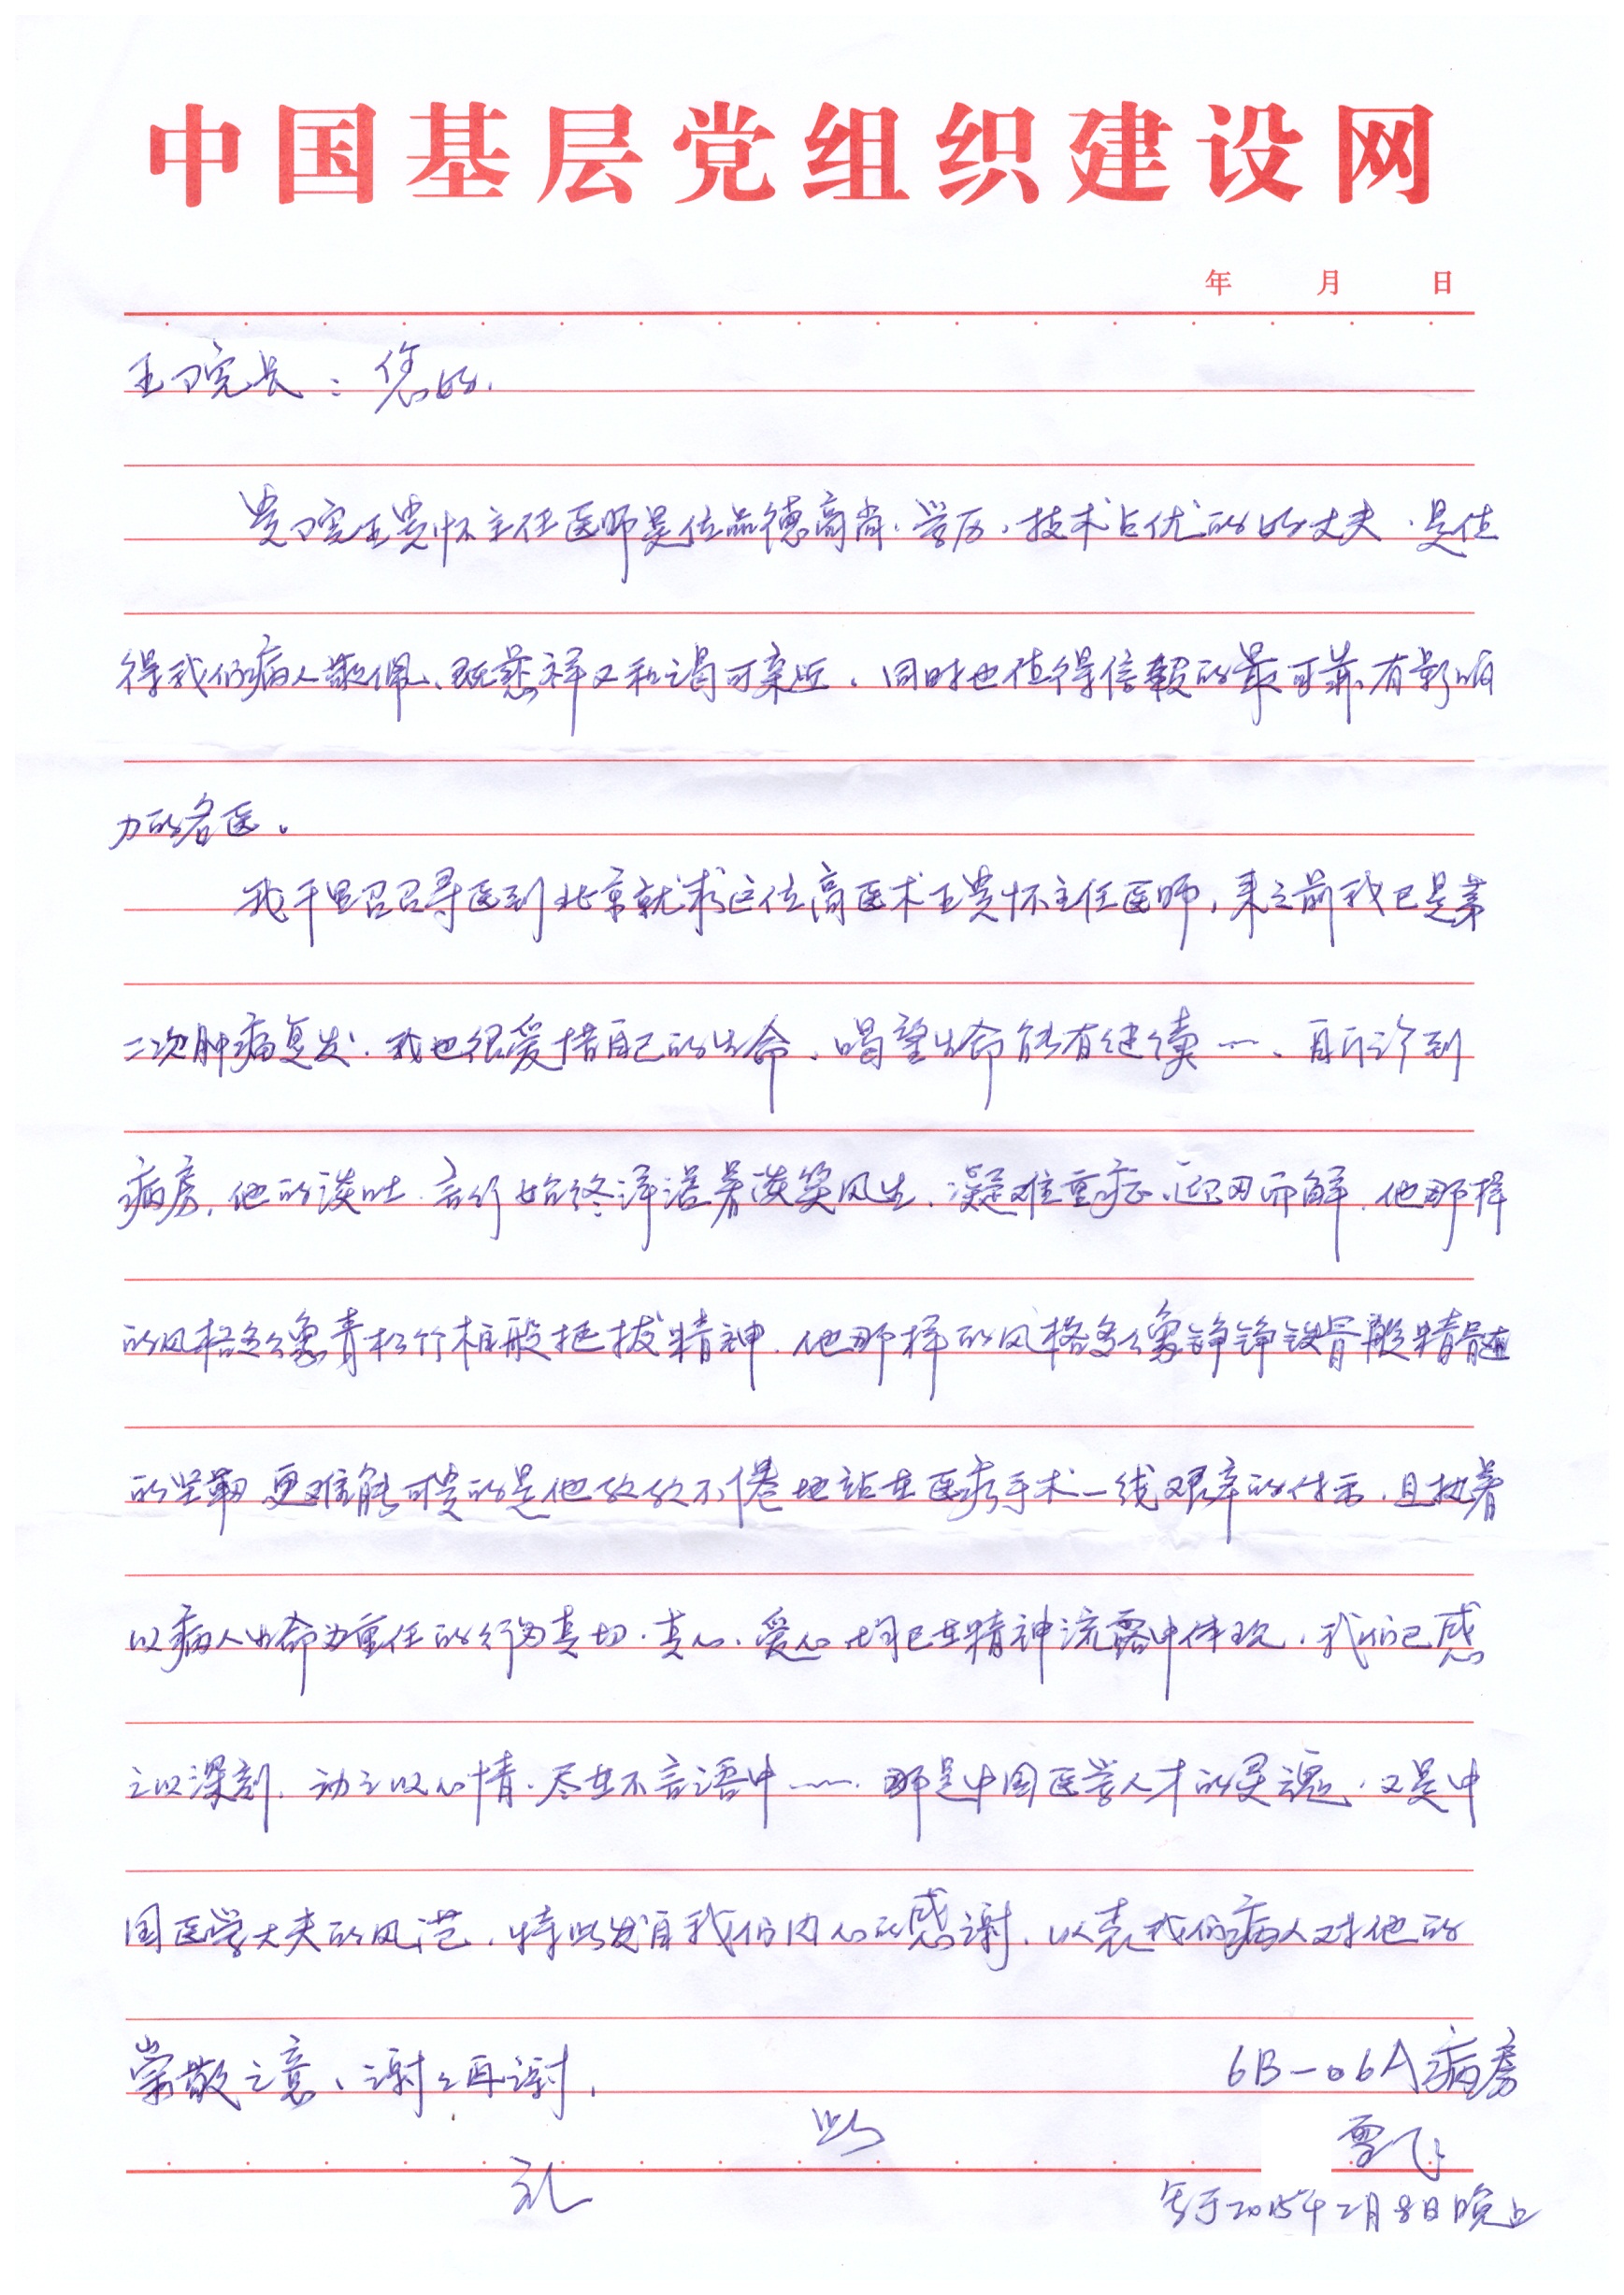 中国基层党组织建设网
年 月 日
王院长：您好.
贵院王贵怀主任医师是位品德高尚、学历、技术占优的好丈夫，是值
得我们病人敬佩、既慈祥又和谒可亲近，同时也值得信赖的最可靠、有影响
力的名医。
我千里召召寻医到北京就求这位高医术王贵怀主任医师，来之前我已是第
二次肿病复发，我也很爱惜自己的生命，喝望生命能有继续……、自门诊到
病房，他的谈吐、言行始终洋溢着谈笑风生，凝难重症、迎刃而解，他那样
的风格多么像青松竹柱般挺拔精神，他那样的风格多么像铮铮铁骨般精髓
的坚韧 更难能可贵的是他孜孜不倦地站在医疗手术一线艰辛的付出，且执着
以病人生命为重任的行为真切、真心、爱心均已在精神流露中体现，我们已感
之以深刻，动之以心情，尽在不言语中……，那是中国医学人才的灵魂，又是中
国医学大夫的风范，特此发自我们内心的感谢，以表我们病人对他的
崇敬之意、谢谢再谢，
6B-06A病房
此
雪飞
礼
写于2015年2月8日晚上